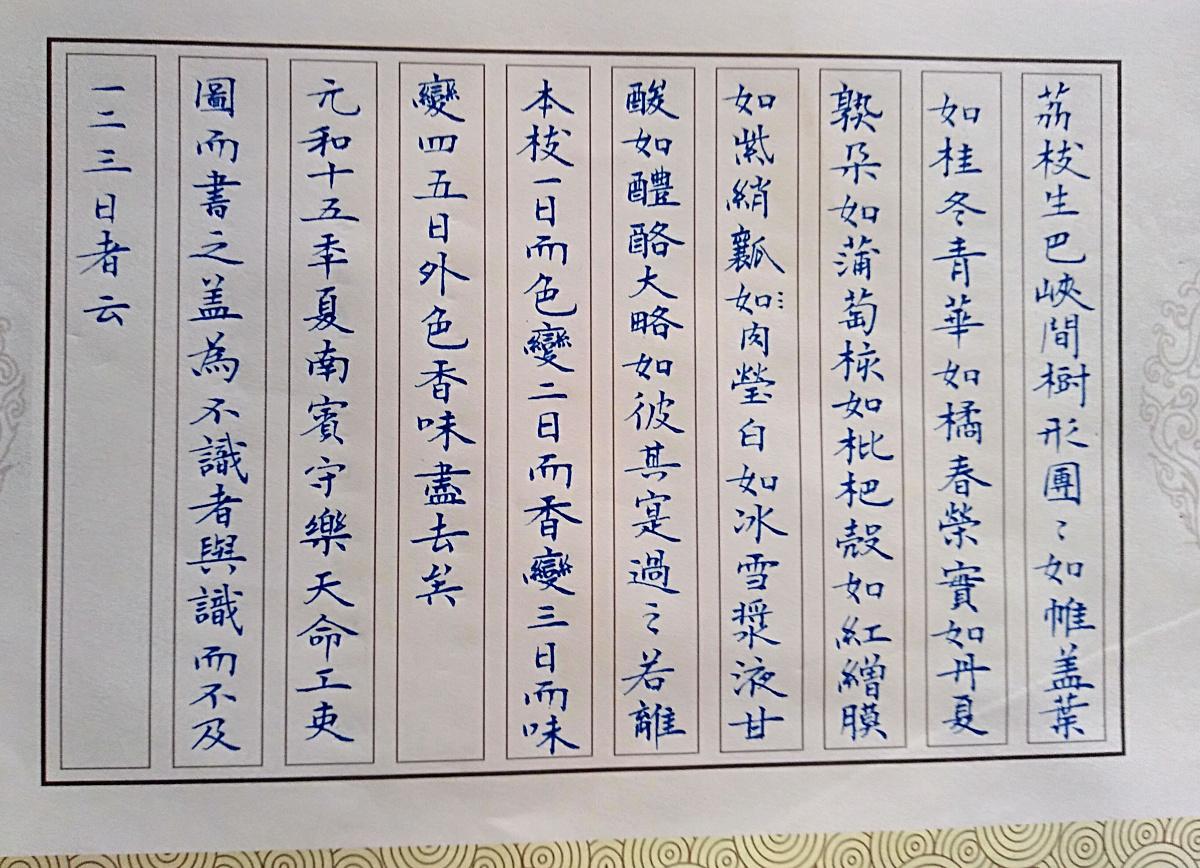 荔枝生巴峽間樹形團〻如帷盖葉
如桂冬青華如橘春榮實如丹夏
熟朵如蒲萄核如枇杷殼如紅繒膜
如紫綃瓤如肉瑩白如冰雪漿液甘
酸如醴酪大略如彼其寔過之若離
本枝一日而色變二日而香變三日而味
變四五日外色香味盡去矣
元和十五年夏南賓守樂天命工吏
圖而書之盖為不識者與識而不及
一二三日者云